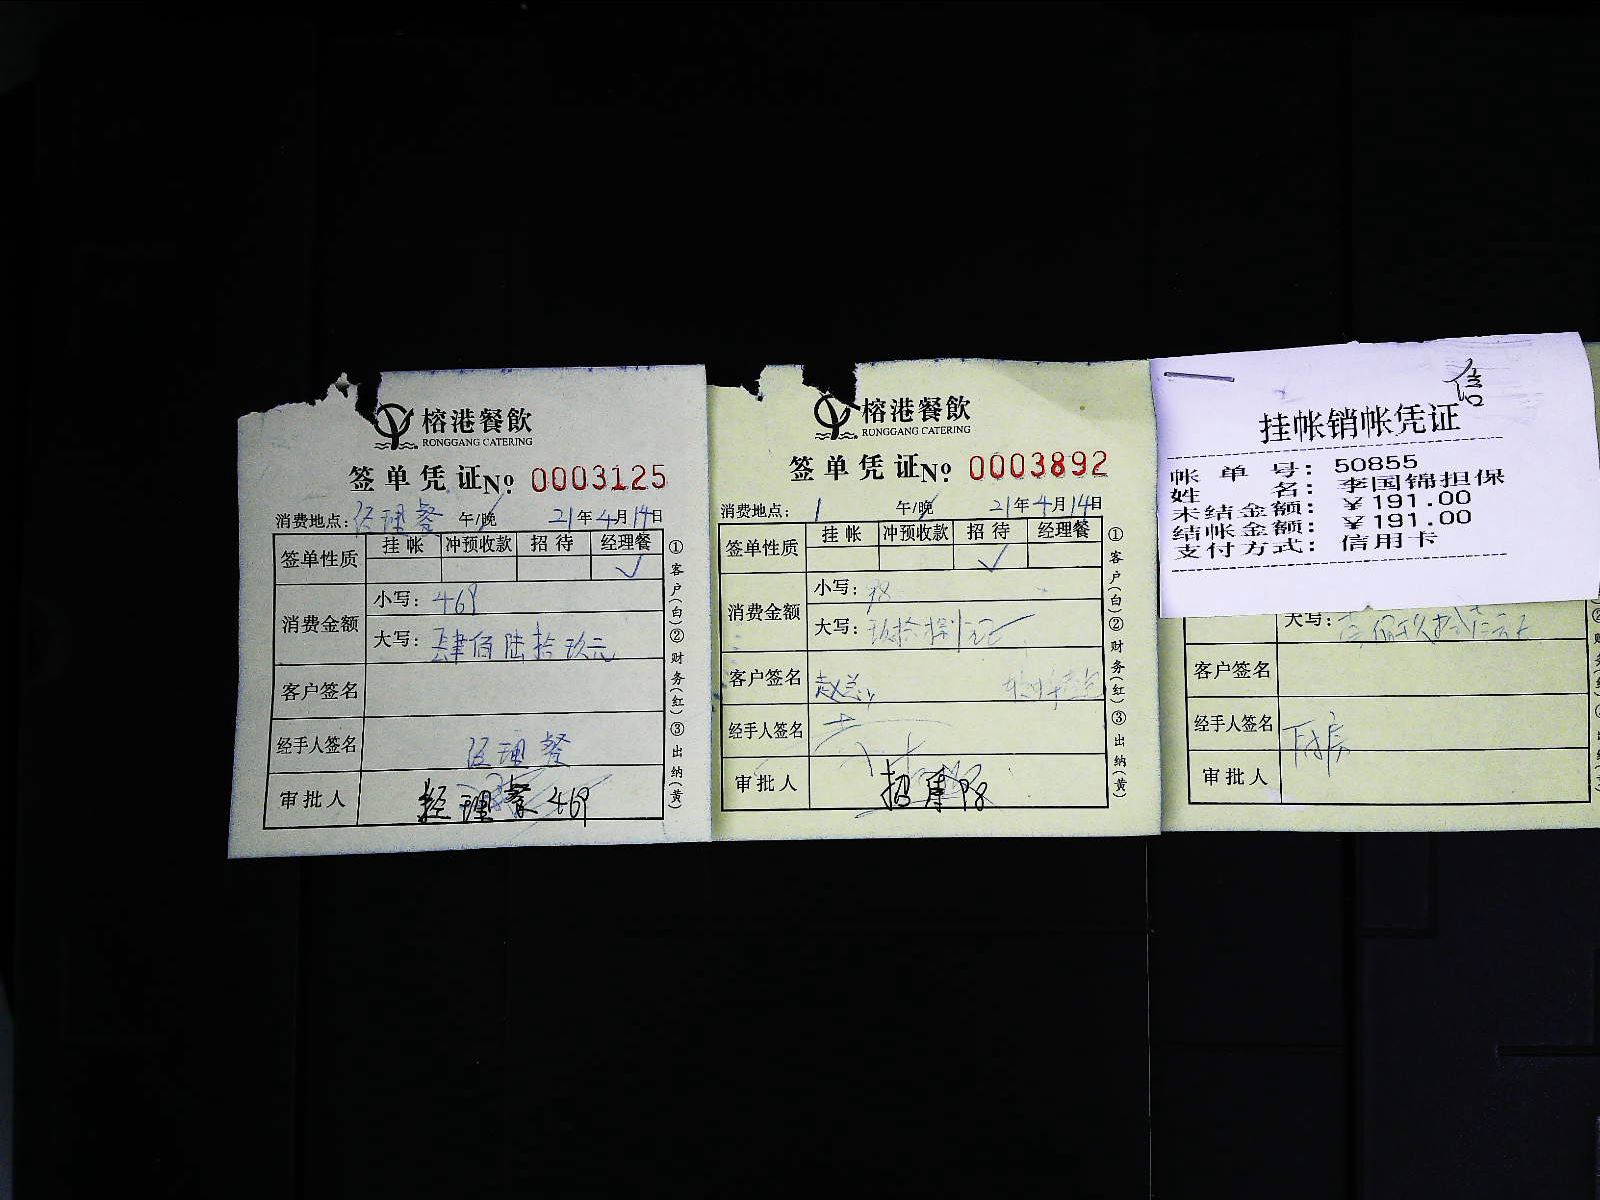 榕港餐飲
RONGGANG CATERING
签单凭证№ 0003125
消费地点：经理餐 午/晚 21年4月14日
签单性质 挂帐 冲预收款 招待 经理餐
✓
消费金额
小写：469
大写：肆佰陆拾玖元
客户签名
经手人签名 经理餐
审批人 经理餐469
①客户(白)②财务(红)③出纳(黄)
榕港餐飲
RONGGANG CATERING
签单凭证№ 0003892
消费地点：1 午/晚 21年4月14日
签单性质 挂帐 冲预收款 招待 经理餐
✓
消费金额
小写：98
大写：玖拾捌元
客户签名
经手人签名
审批人 98
①客户(白)②财务(红)③出纳(黄)
信
挂帐销帐凭证
帐单号：50855
姓名：李国锦担保
未结金额：￥191.00
结帐金额：￥191.00
支付方式：信用卡
大写：
客户签名
经手人签名
审批人